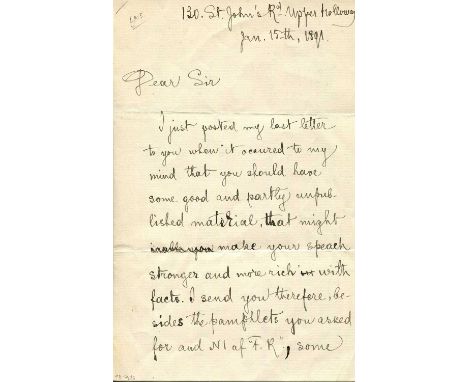 130. St. John's Rd. Upper Holloway
Jan. 15th, 1891.
Dear Sir
I just posted my last letter
to you when it occured to my
mind that you should have
some good and partly unpub-
lished material, that might
make your speach
stronger and more rich with
facts. I send you therefore, be-
sides the pamphlets you asked
for and N1 of "F. R", some